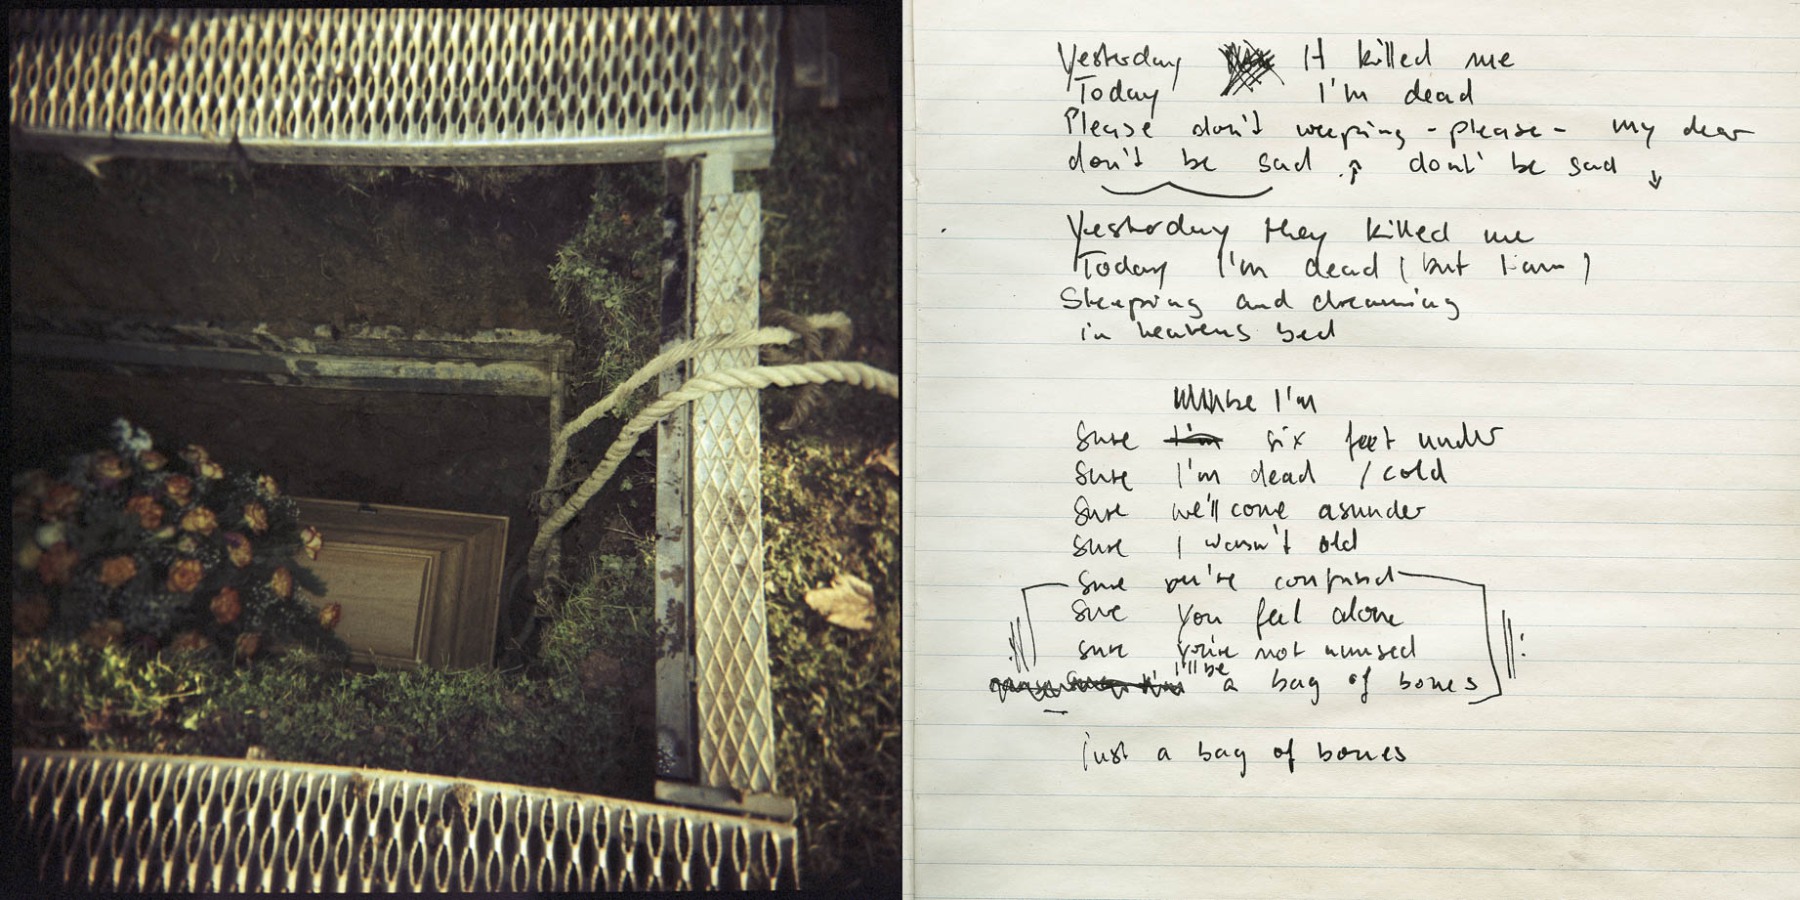 Yesterday It killed me
Today I'm dead
Please don't weeping - please - my dear
don't be sad dont' be sad
Yesterday they killed me
Today I'm dead (but I am)
Sleeping and dreaming
in heavens bed
I'm
Sure six feet under
Sure I'm dead / cold
Sure we'll come asunder
Sure I wasn't old
Sure you're confused
Sure you feel alone
sure you're not amused
I'll be
a bag of bones
just a bag of bones